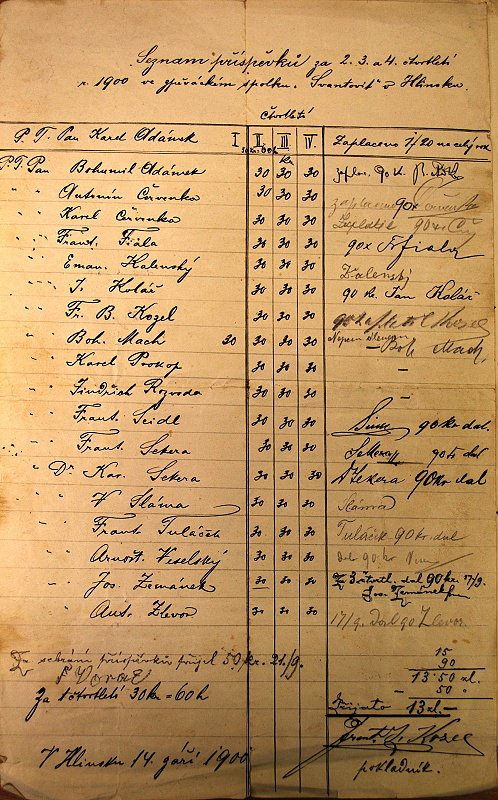 Seznam příspěvků za 2. 3. a 4. čtvrtletí
r. 1900 ve zpěváckém spolku "Svantovít" v Hlinsku.
čtvrtletí
P. T. Pan Karel Adámek I II. III. IV. Zaplaceno 7/20 na celý rok
kr
P.T. Pan Bohumil Adámek 30 30 30 90 k.
" " Antonín Červenka 30 30 30 zaplaceno 90x
" " Karel Červenka 30 30 30 90
" " Frant. Fiala 30 30 30 90x Afiala
" " Eman. Kalenský 30 30 30 Kalenský
" " J. Kolář 30 30 30 90 kr. Jan Kolář
" " Fr. B. Kozel 30 30 30 90
" " Boh. Mach 30 30 30 30 Nejsem členem Boh. Mach.
" " Karel Prokop 30 30 30 –
" " Jindřich Rozvoda 30 30 30 –
" " Frant. Seidl 30 30 30 90 kr dal.
" " Frant. Sekera 30 30 30 Sekera 90 kr dal
" " Dr Kar. Sekera 30 30 30 Sekera 90 kr dal
" " V Sláma 30 30 30 Sláma
" " Frant Tuláček 30 30 30 Tuláček 90 kr. dal
" " Arnošt. Veselský 30 30 30 dal 90 kr
" " Jos. Zemánek 30 30 30 Za 3 čtvrtl. dal 90 kr. 17/9.
Jos. Zemánek
" " Ant. Zlevor 30 30 30 17/9. dal 90 Zlevor.
15
90
Za sebrání příspěvků přijal 50 kr. 21./9.
13·50 zl.
50 "
Za 1 čtvrtletí 30 kr = 60 h
Přijato 13 zl.–
Frant. B. Kozel
V Hlinsku 14. září 1900
pokladník.